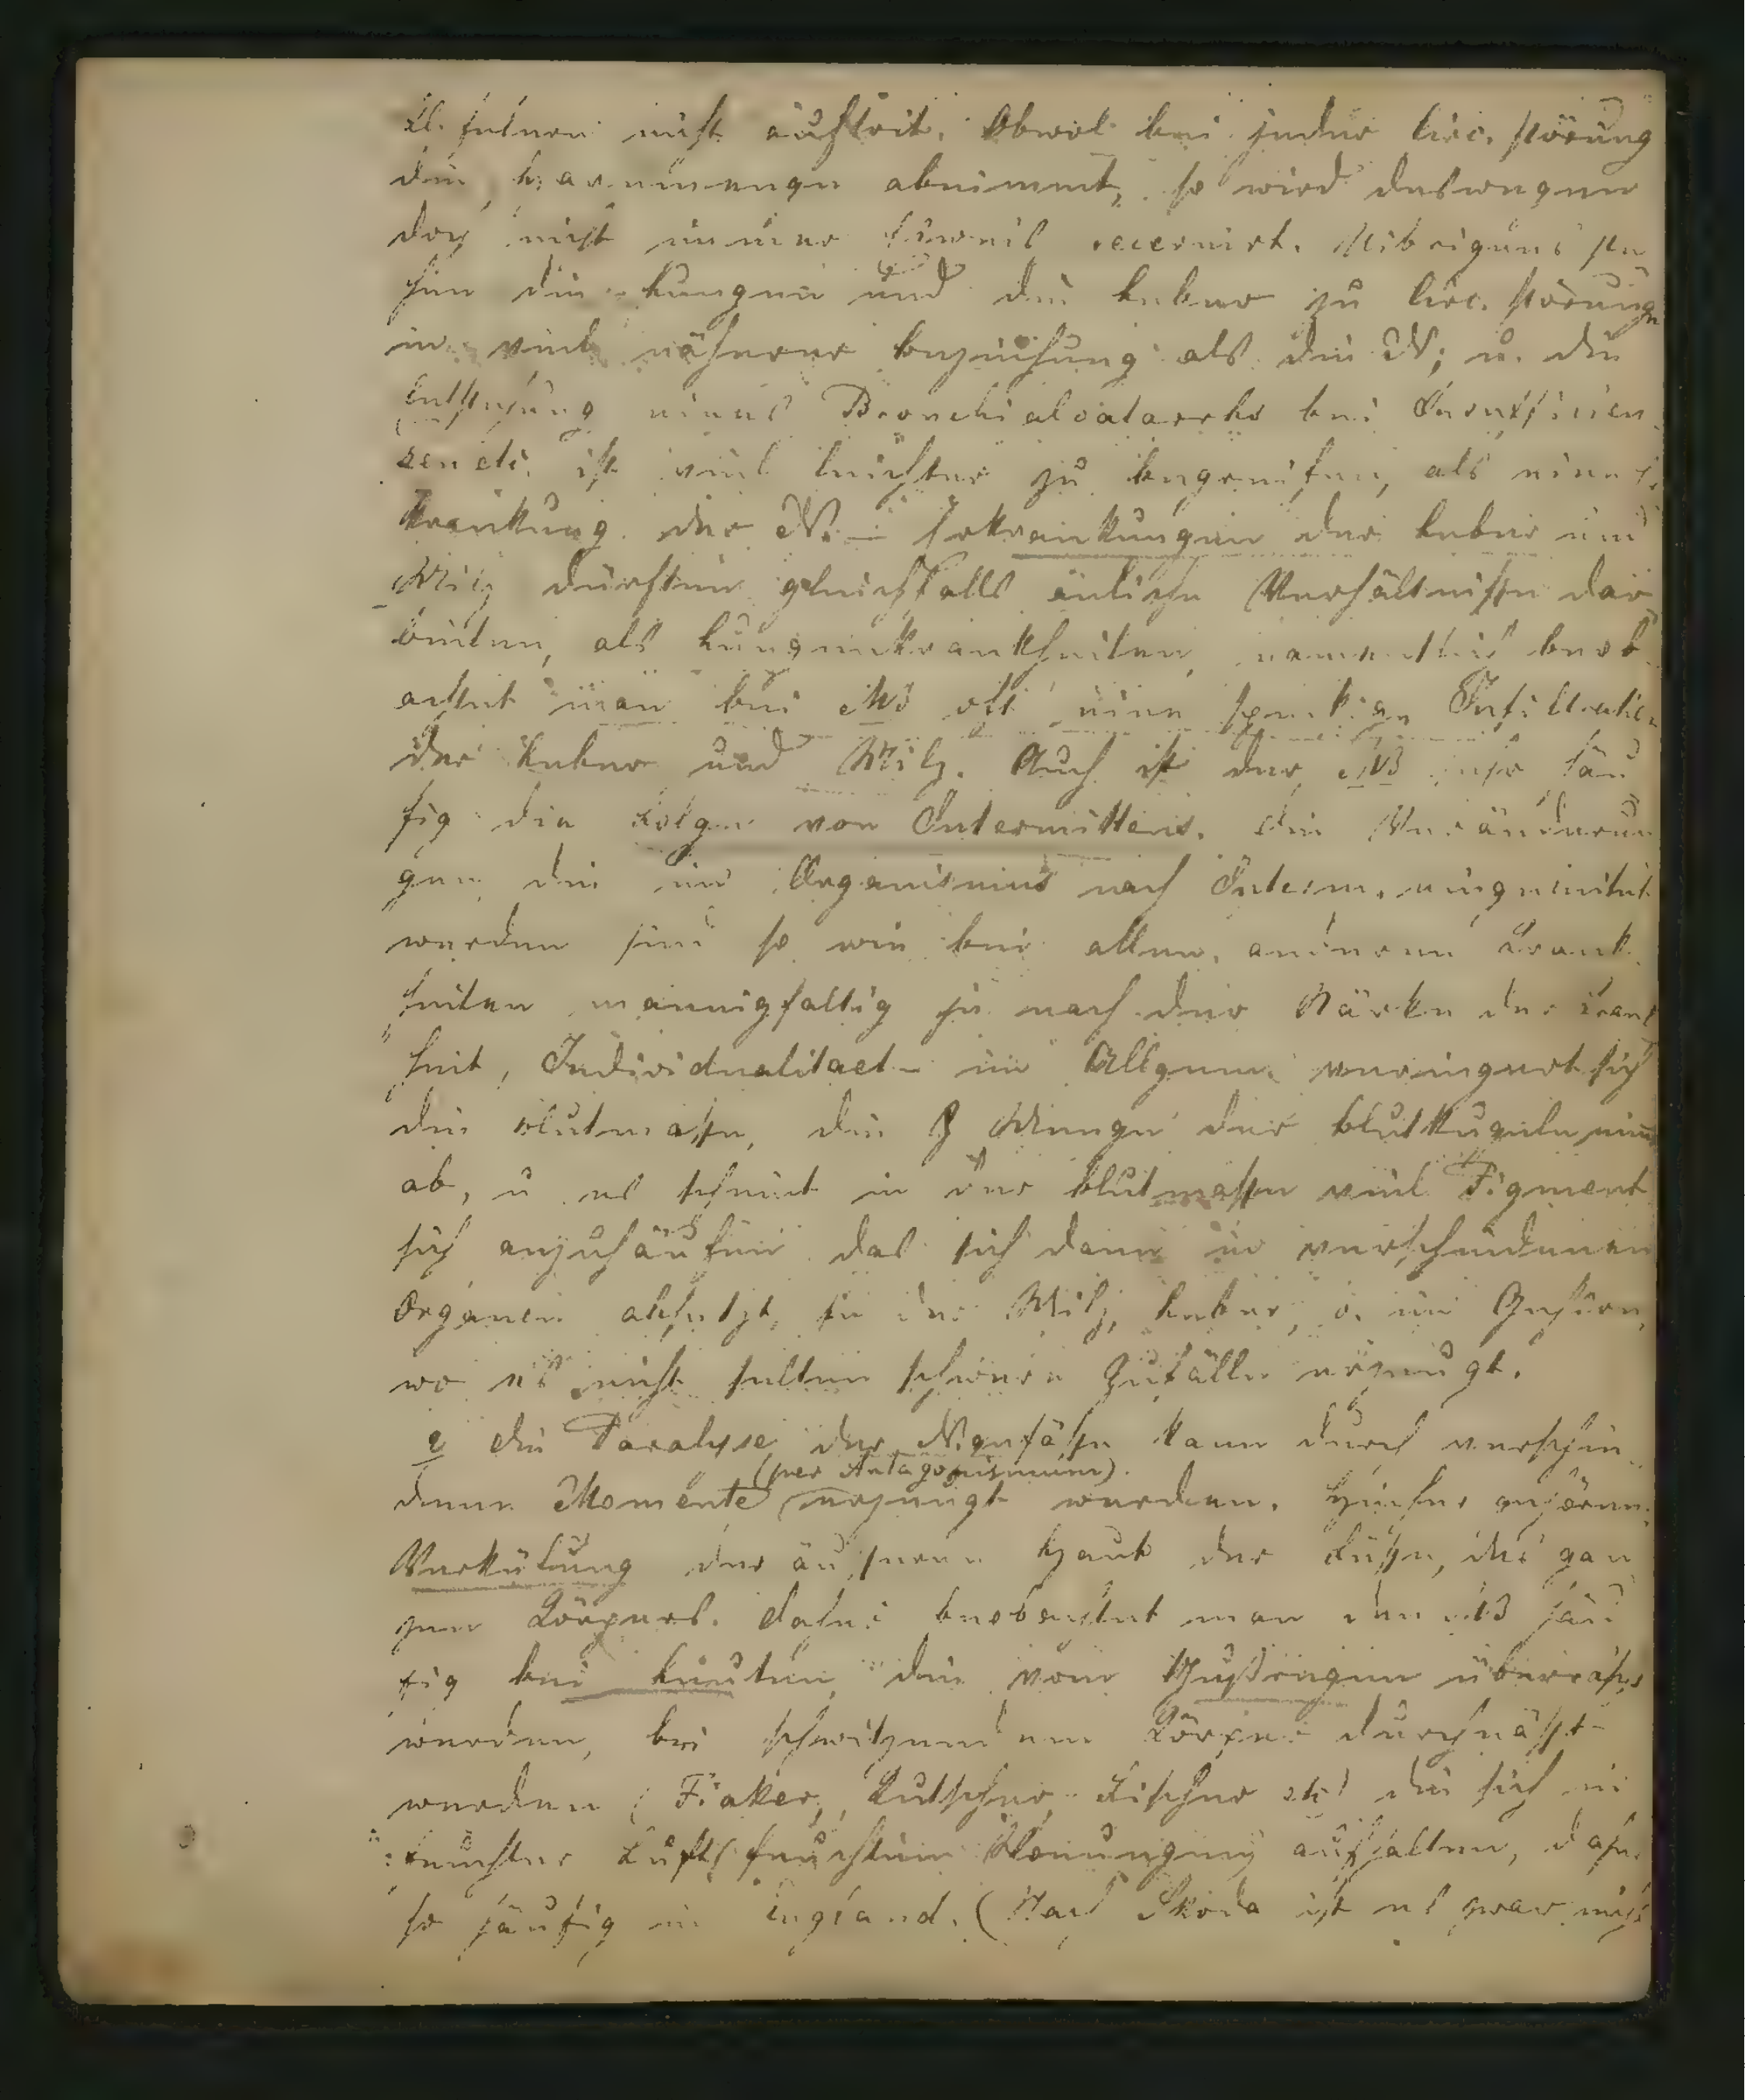 Kl. fehlern nicht auftrit. Obwol bei jeder Circ. störung
die harnmenge abnimmt, so wird deswegen
doch nicht immer Eiweis secernirt. Uibrigens ste
hen die Lungen und die Leber zu Circ. störungen
in viel näherer beziehung als die N; u. die
Entstehung eines Bronchialcatarrhs bei Insufficien
ist viel leichter zu begreifen, als eine Er
krankung der N. – Erkrankungen der Leber und
Milz dürften gleichfalls änliche Verhältnisse dar
bieten, als Lungenkrankheiten, namentlich beob
achtet man bei MB oft eine speckige Infiltration
der Leber und Milz. Auch ist der MB sehr häu
fig die Folge von Intermittens. die Veränderun
gen die im Organismus nach Interm. eingeleitet
werden sind so wie bei allen anderen Krank
heiten mannigfaltig je nach der Stärke der Krank
heit, Individualitaet – im Allgem. verringert sich
die blutmasse, die Menge der blutkugeln nimt
ab, u es scheint in der blutmasse viel Pigment
sich anzuhäufen das sich dann in verschiedenen
Organen absetzt, in der Milz, Leber, o. im Gehirn,
wo es nicht selten schwere Zufälle erzeugt.
2 die Paralyse der N.gefässe kann durch verschie
(per Antagonismum).
dene Momente erzeugt werden. hieher gehören:
Verkülung der äusseren haut der Füsse, des gan
zen Körpers. daher beobachtet man den MB häu
fig bei Leuten, die vom Gussregen überrascht
werden, bei schwitzendem Körper durchnässt
werden (Fiaker, Kutscher, Fischer etc) die sich in
feuchter Luft, feuchten Wonungen aufhalten, daher
so häufig in England. (Nach Skoda ist es zwar nicht